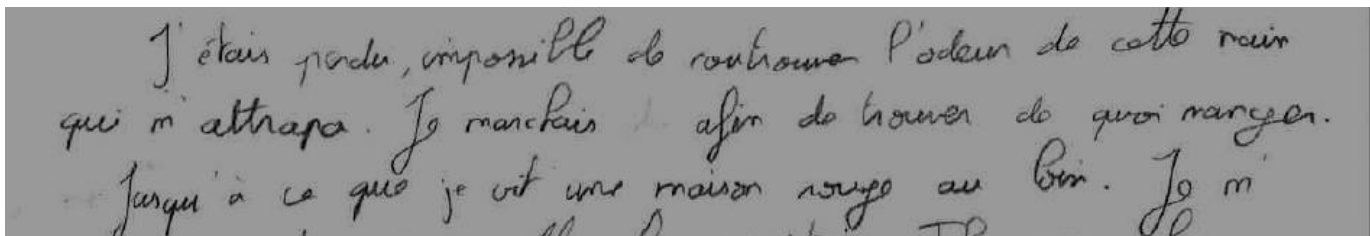 J'étais perdu, impossible de rentrouver l'odeur de cette main
qui m'attrapa. Je marchais afin de trouver de quoi manger.
Jusqu'à ce que je vit une maison rouge au loin. Je m'